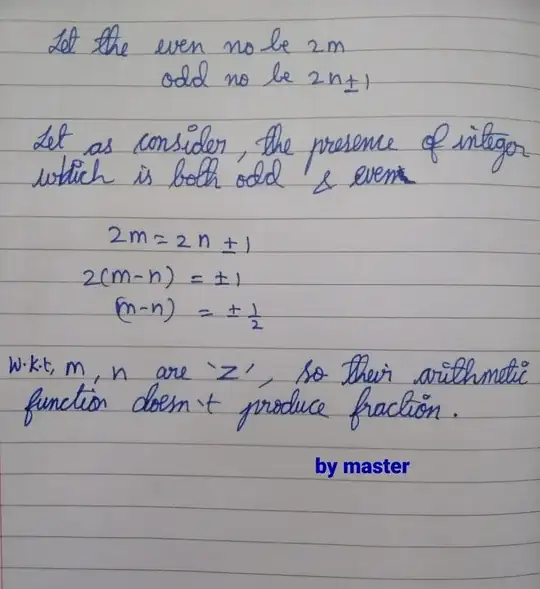 Let the even no be 2m
odd no be 2n±1
Let as consider, the presence of integer
which is both odd & even
2m = 2n ± 1
2(m-n) = ±1
(m-n) = ± 1/2
W.k.t, m, n are 'Z', so their arithmetic
function doesn't produce fraction.
by master